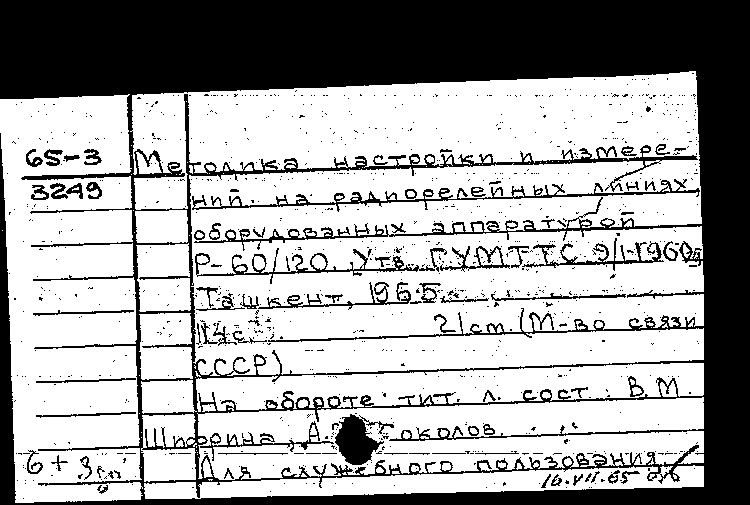 65-3 Методика настройки и измере-
3249 ний на радиорелейных линиях,
оборудованных аппаратурой
Р-60/120. Утв. ГУМТТС 9/I-1960г.
Ташкент, 1965.
114с. 21cm. (М-во связи
СССР).
На обороте тит. л. сост.: В.М.
Шифрина, А. Соколов.
6+3 Для служебного пользования.
16.VII.65